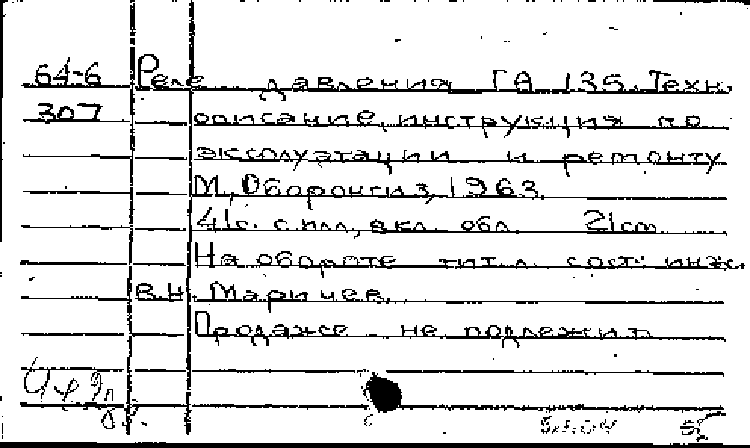 64-6 Реле давления ГА 135. Техн.
307 описание, инструкция по
эксплуатации и ремонту
М, Оборонгиз, 1963.
41с. с илл., вкл. обл. 21cm
На обороте тит. л. сост: инж.
В.Н. Маричев.
Продаже не подлежит